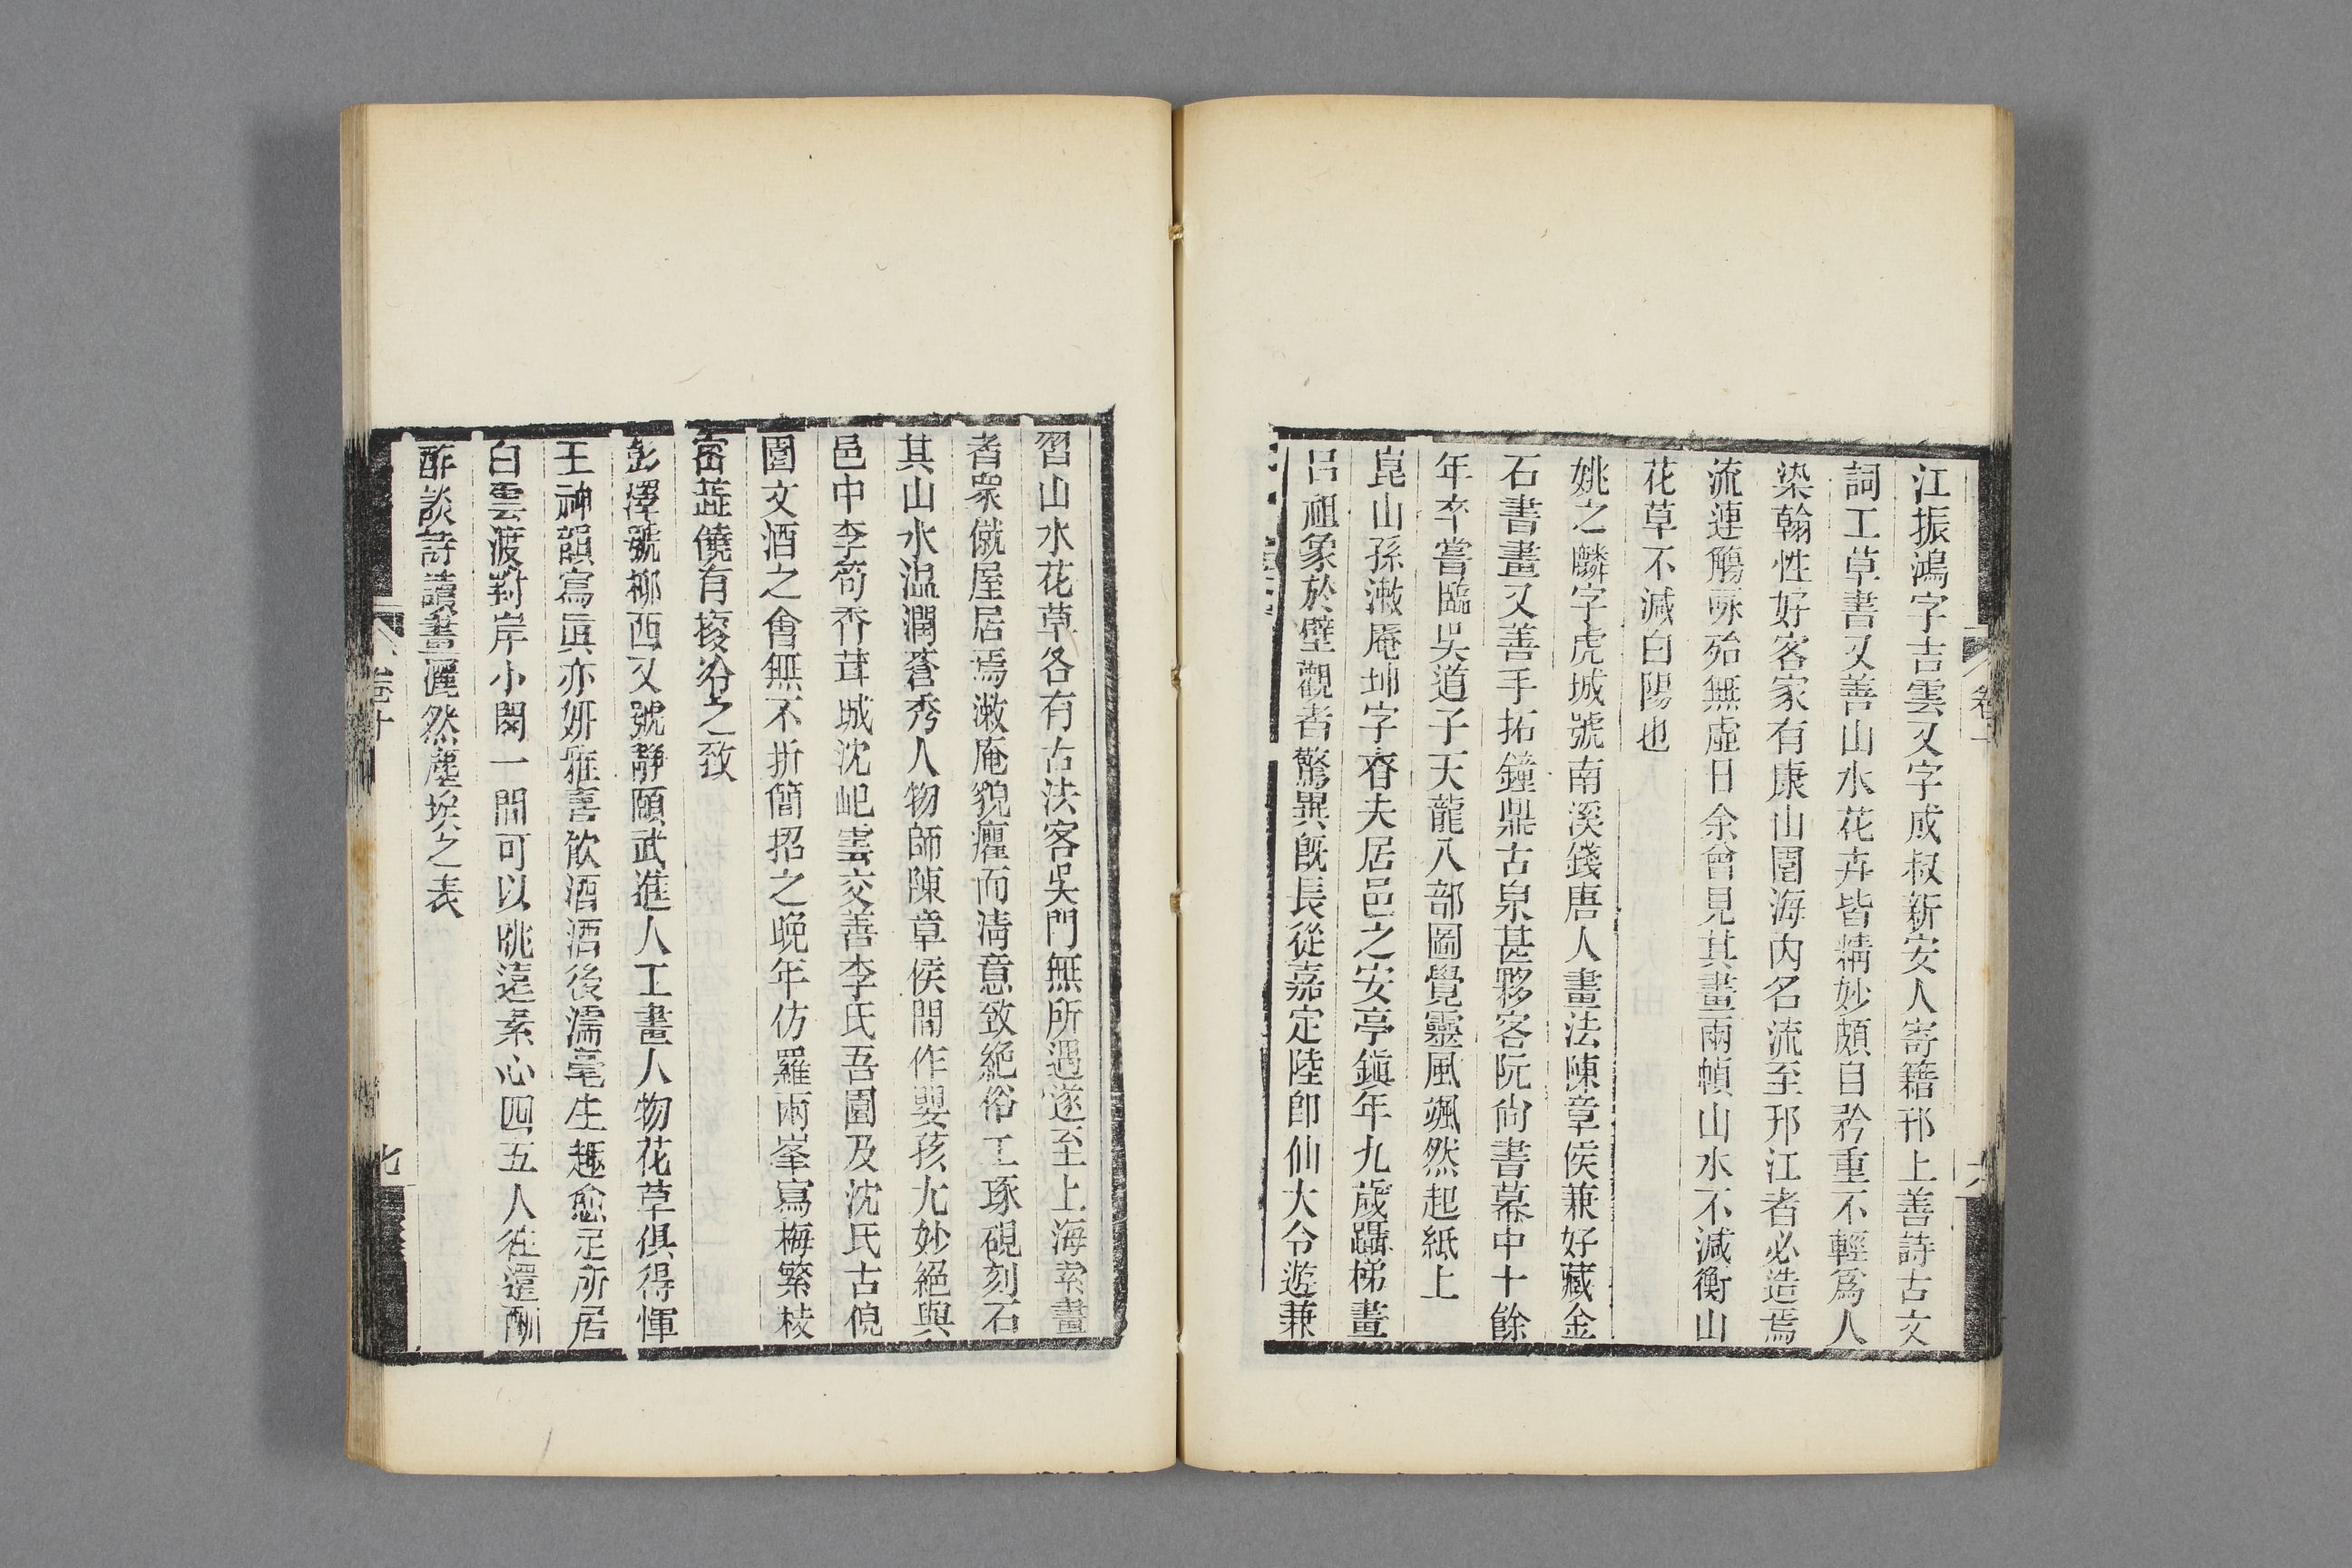 江振鴻字吉雲又字成叔新安人寄籍邗上善詩古文
詞工草書又善山水花卉皆精妙頗自矜重不輕爲人
染翰性好客家有康山園海内名流至邗江者必造焉
流連觴咏殆無虛日余曾見其畫兩幀山水不減衡山
花草不減白陽也
姚之麟字虎城號南溪錢唐人畫法陳章侯兼好藏金
石書畫又善手拓鐘鼎古泉甚夥客阮尙書幕中十餘
年卒嘗臨吳道子天龍八部圖覺靈風颯然起紙上
崑山孫漱庵坤字春夫居邑之安亭鎭年九歲躡梯畫
呂祖象於壁觀者驚異旣長從嘉定陸卽仙大令遊兼
習山水花草各有古法客吳門無所遇遂至上海索畫
者眾僦屋居焉漱庵貌癯而淸意致絕俗工琢硯刻石
其山水溫潤蒼秀人物師陳章侯間作嬰孩尤妙絕與
邑中李筍香茸城沈屺雲交善李氏吾園及沈氏古倪
園文酒之會無不折簡招之晚年仿羅兩峯寫梅繁枝
密蕋饒有㨰㳂之致
彭澤號椰西又號靜頤武進人工畫人物花草俱得惲
王神韻寫眞亦妍雅喜飲酒酒後濡毫生趣愈足所居
白雲渡對岸小閣一間可以眺遠素心四五人往還酬
酢談詩讀畫灑然塵埃之表
卷十
七